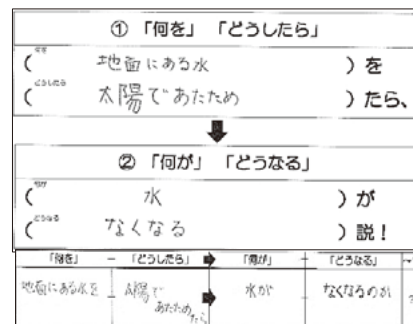 ① 「何を」 「どうしたら」
( 何を 地面にある水 ) を
( どうしたら 太陽であたため ) たら、
② 「何が」 「どうなる」
( 何が 水 ) が
( どうなる なくなる ) 説！
「何を」 － 「どうしたら」 「何が」 － 「どうなる」
地面にある水を 太陽であたためたら 水が なくなるのか ？